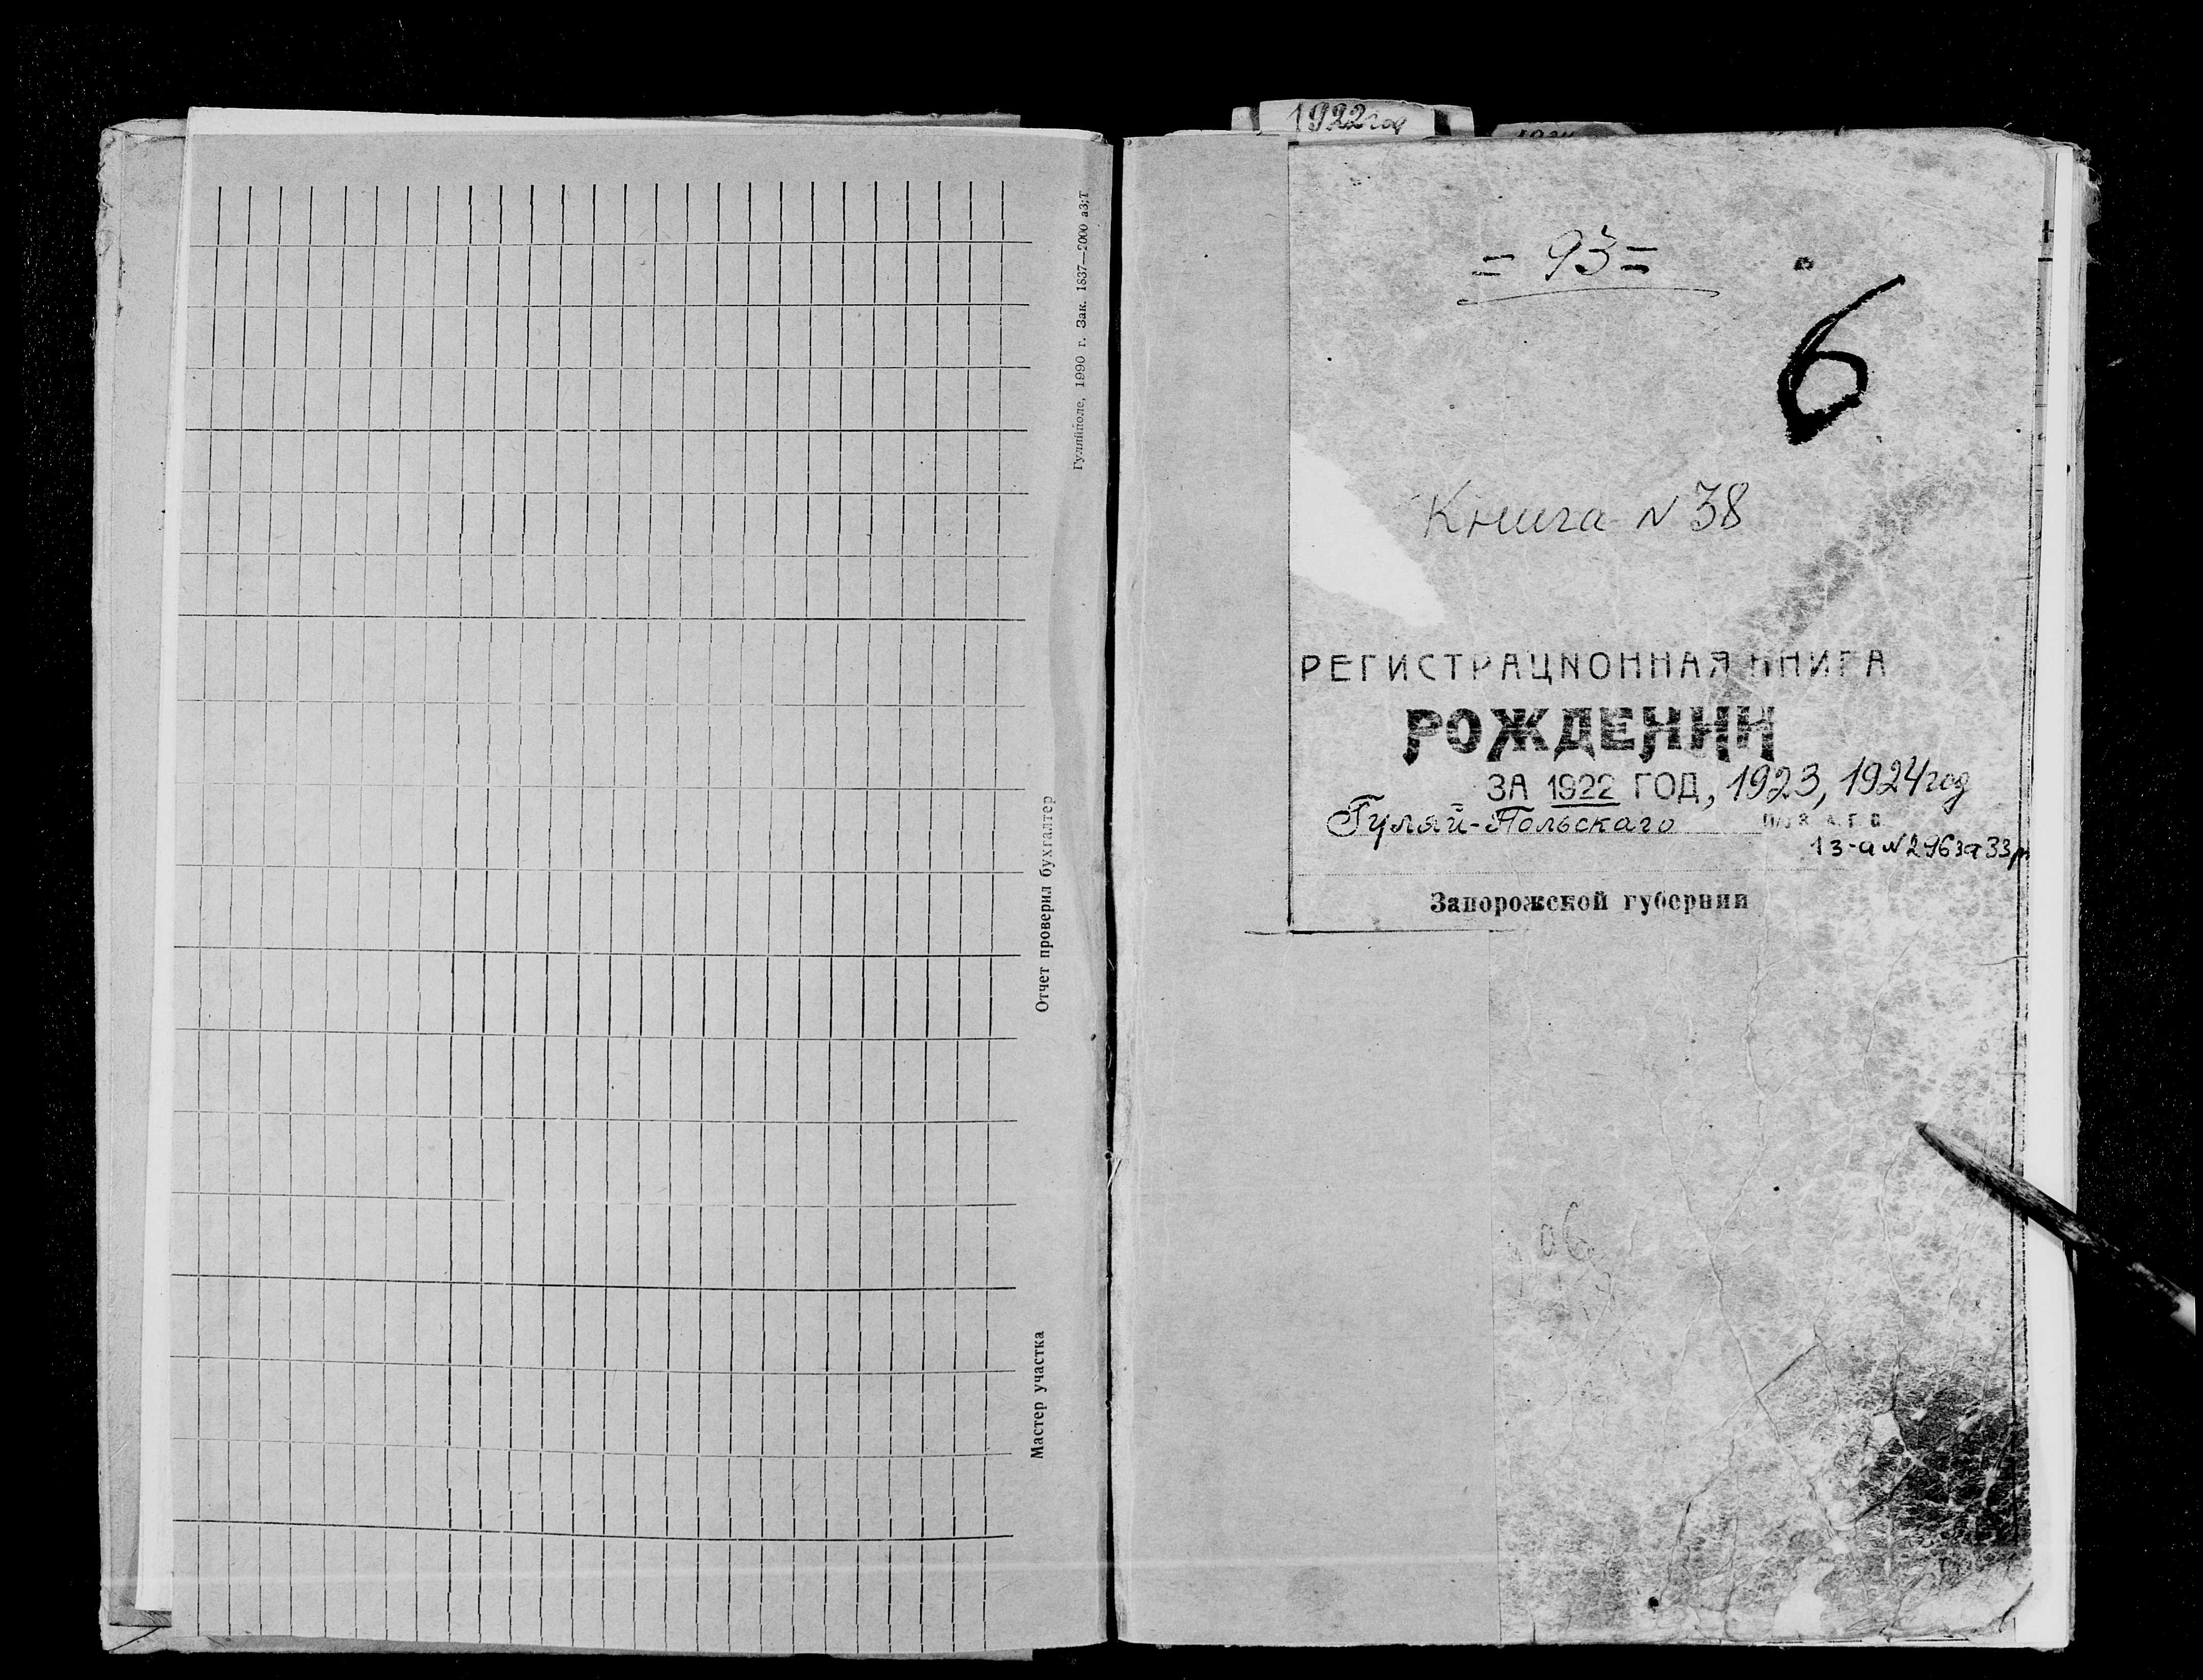 Гуляйполе, 1990 г. Зак. 1837—2000 а3;Т
Отчет проверил бухгалтер
Мастер участка
1922 год
= 93 =
6
Книга N 38
РЕГИСТРАЦИОННАЯ КНИГА
РОЖДЕНИЙ
ЗА 1922 ГОД, 1923, 1924 год
Гуляй-Польского
З. А. Г. С.
13-а N 296 за 33 р
Запорожской губернии